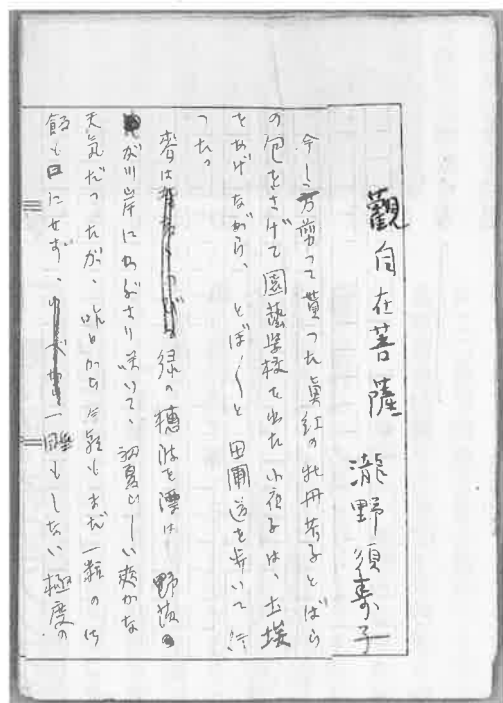 觀自在菩薩　瀧野須壽子
今し方剪って貰った眞紅の牡丹芍子とばら
の包をさげて園藝学校を出た小夜子は、土埃
をあげながら、とぼ〳〵と田圃道を歩いて行
った。
麥は緑の穂波を漂はし野茨
が川岸にあぶさり咲いて、初夏らしい爽かな
天気だったが、昨日から六観もまだ一粒の
飯も口にせず、一睡もしない極度の